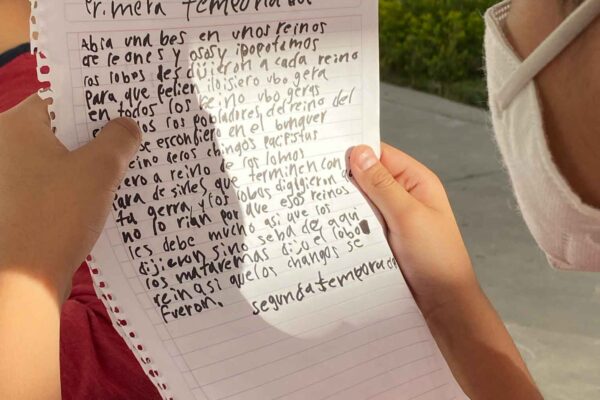 Primera temporada
Abia una bes en unos reinos
de leones y osos y ipopotamos
los lobos des dijieron a cada reino
para que pelien ilo isiero ubo gera
en todos los reino ubo geras
los pobladores del reino del
se esconfieron en el bunquer
reino de los chingos pacifistas
pero a reino de los lomos
para desirles que terminen con
tu gerra y los lobos digigieron
no lo rian por que esos reinos
les debe mucho asi que los
dijieron sino se ba de aqui
los mataremas dijo el lobo
rein asi que los changos se
fueron. segunda temporada